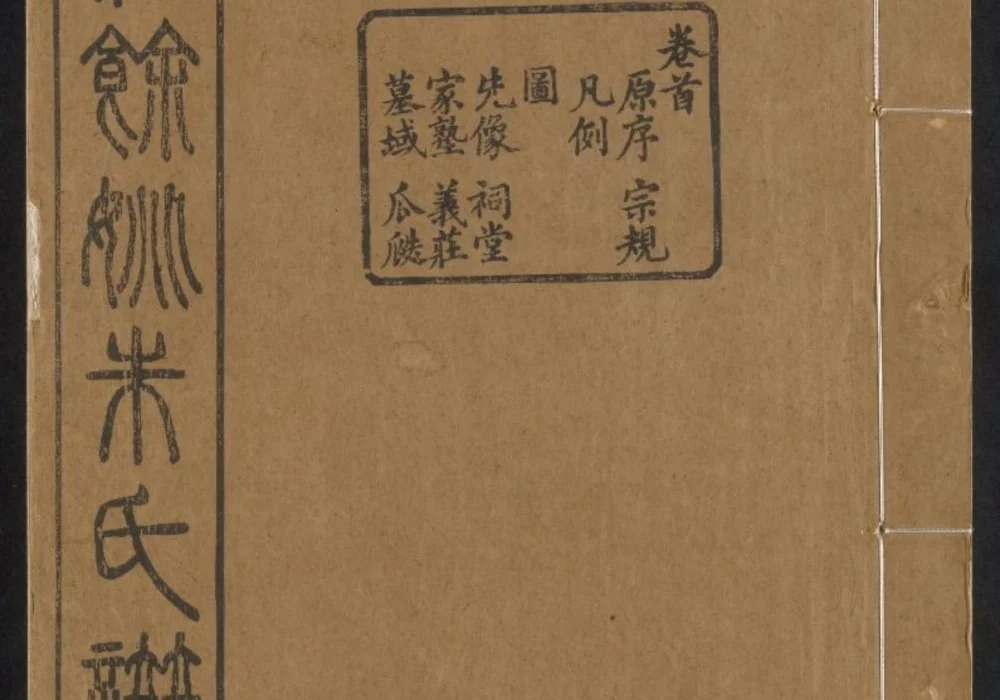 卷首
原序 宗規
凡例
圖
先像 祠堂
家塾 義莊
墓域 瓜瓞
餘姚朱氏譜